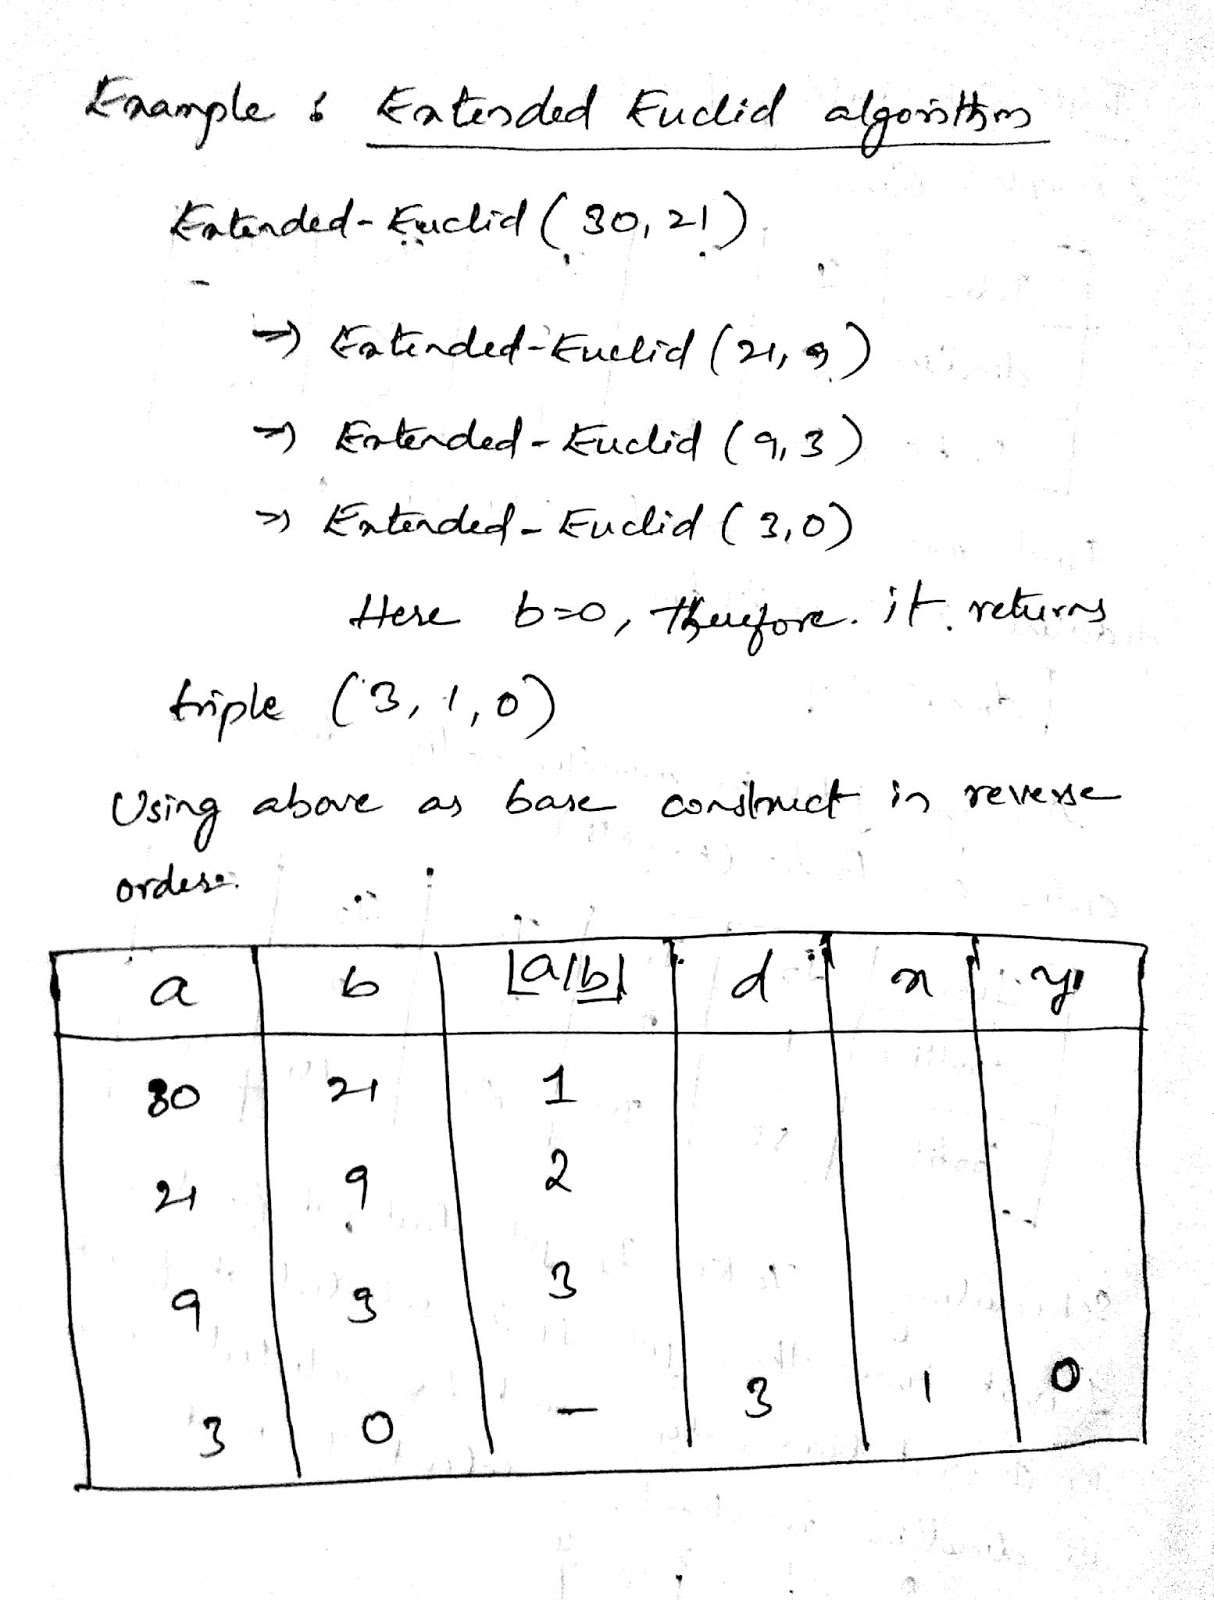 Example : Extended Euclid algorithm
Extended-Euclid (30, 21)
=> Extended-Euclid (21, 9)
=> Extended-Euclid (9, 3)
=> Extended-Euclid (3, 0)
Here b=0, therefore it returns
triple (3, 1, 0)
Using above as base construct in reverse
order.
a b ⌊a/b⌋ d x y
30 21 1
21 9 2
9 3 3
3 0 – 3 1 0